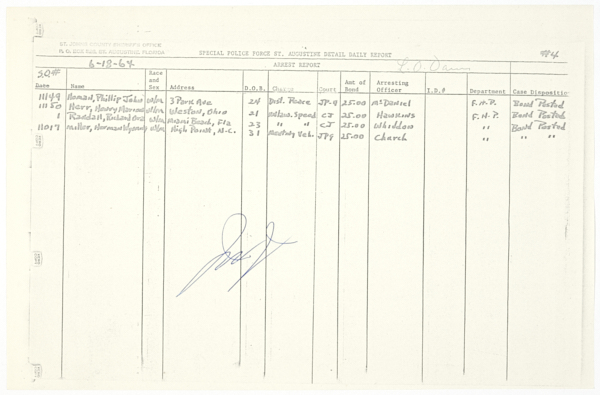 ST. JOHNS COUNTY SHERIFF'S OFFICE
SPECIAL POLICE FORCE ST. AUGUSTINE DETAIL DAILY REPORT #4
6-13-64 ARREST REPORT L. O. Davis
Date Name Race and Sex Address D.O.B. Charge Court Amt of Bond Arresting Officer I.D.# Department Case Disposition
11149 Homad, Phillip John W/M 3 Park Ave 24 Dist. Peace JP-9 25.00 McDaniel F.H.P. Bond Posted
11150 Herr, Henry W/M Weston, Ohio 21 Speed CJ 25.00 Hawkins F.H.P. Bond Posted
1 Randall, Richard W/M Miami Beach, Fla 23 " " CJ 25.00 Whiddon " Bond Posted
Miller, Norman W/M High Point, N.C. 31 Veh. JP9 25.00 Church " " "